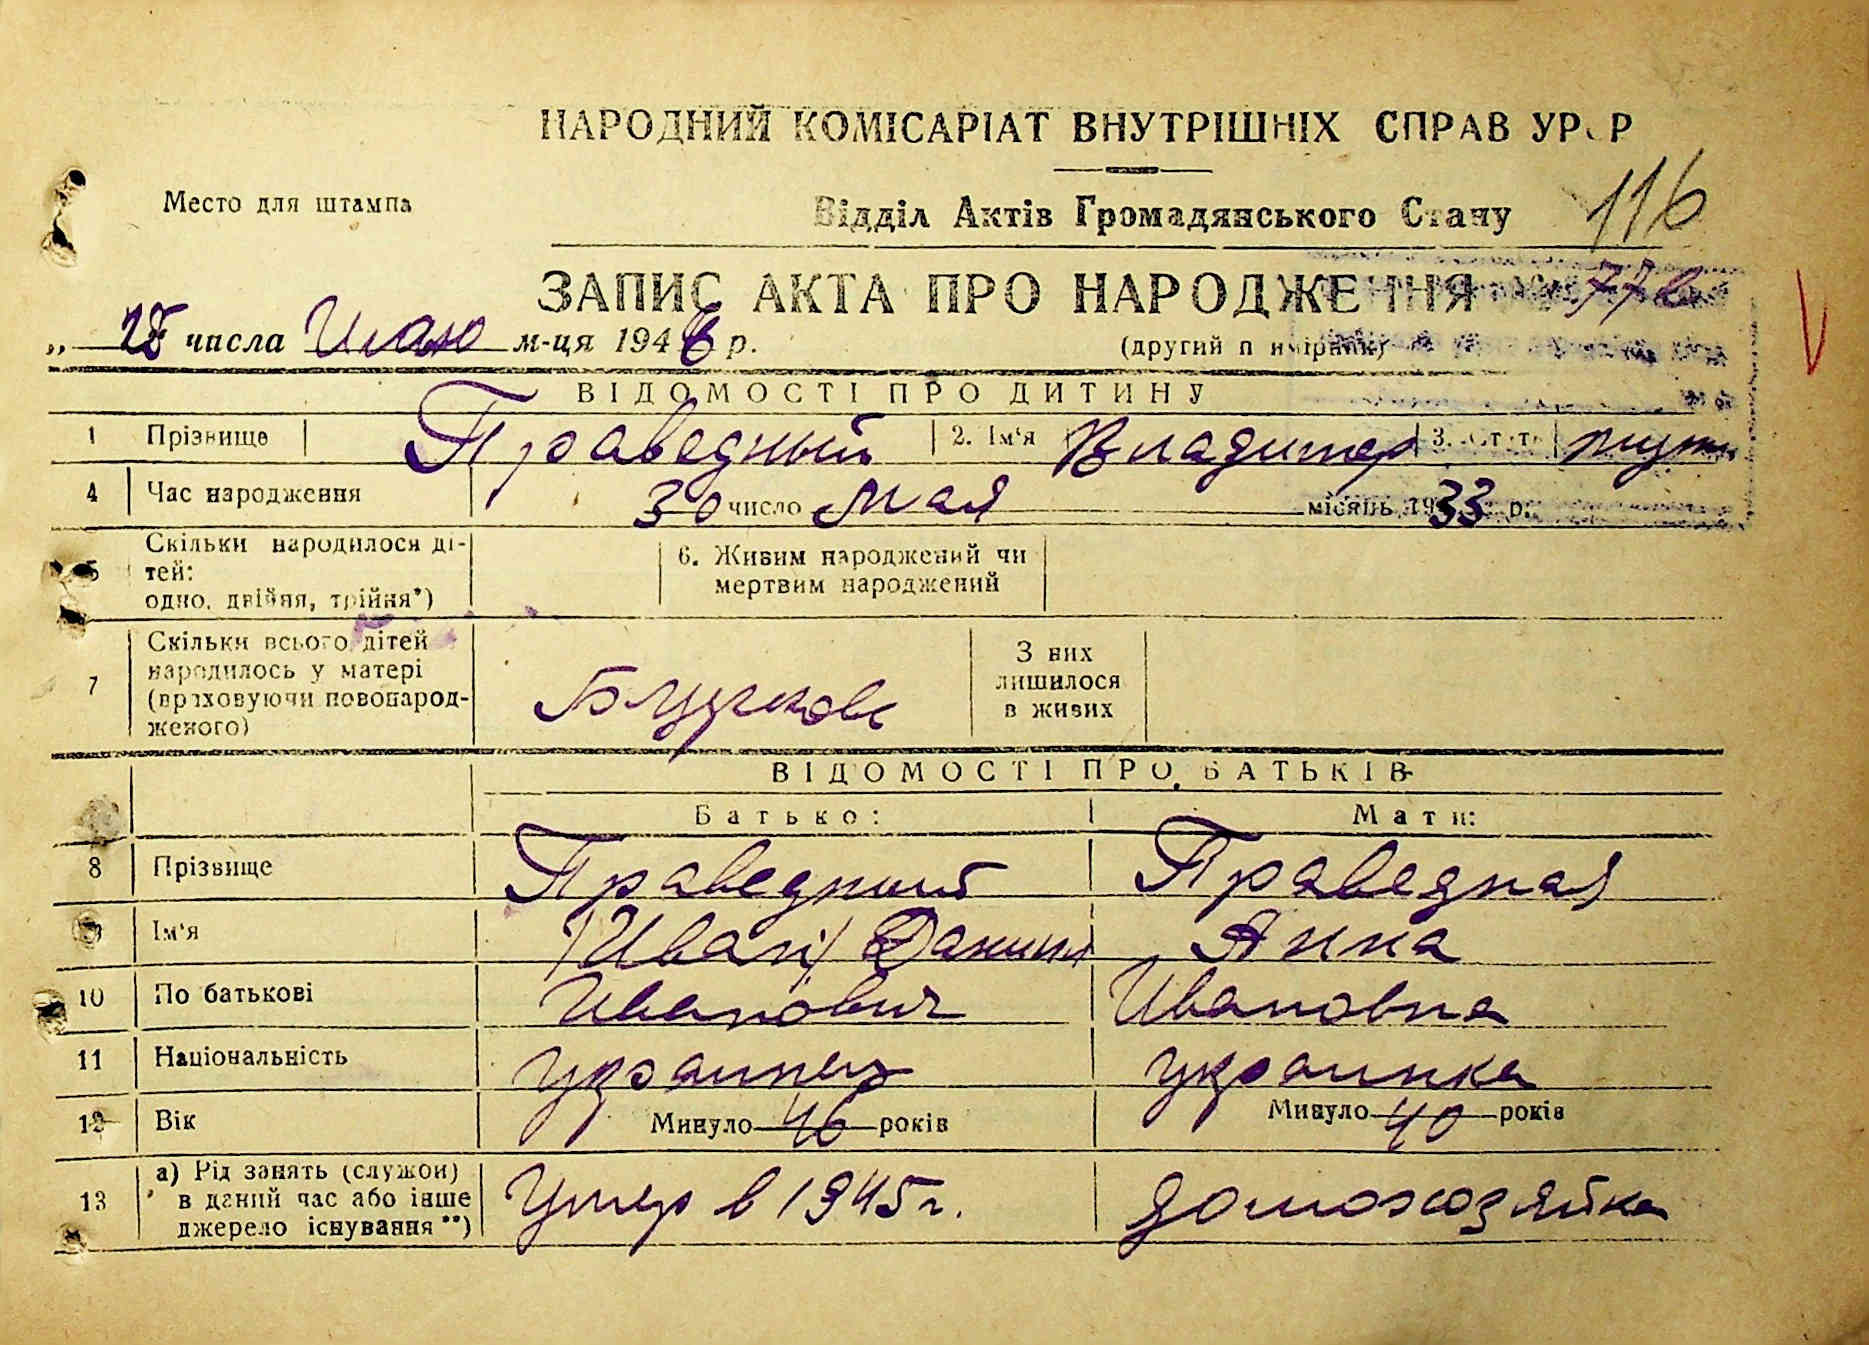 НАРОДНИЙ КОМІСАРІАТ ВНУТРІШНІХ СПРАВ УРСР
Место для штампа
Відділ Актів Громадянського Стану 116
ЗАПИС АКТА ПРО НАРОДЖЕННЯ 77
„ числа м-ця 1946 р.
(другий примірник)
ВІДОМОСТІ ПРО ДИТИНУ
1 Прізвище Праведный 2. Ім'я Владимер 3. Стать муж
4 Час народження 30 число мая місяць 1933 р.
5 Скільки народилося ді-
тей:
одно, двійня, трійня*)
6. Живим народжений чи
мертвим народжений
7 Скільки всього дітей
народилось у матері
(враховуючи новонарод-
женого)
З них
лишилося
в живих
ВІДОМОСТІ ПРО БАТЬКІВ
Батько: Мати:
8 Прізвище Праведный Праведная
9 Ім'я /Иван/ Данил Анна
10 По батькові Иванович Ивановна
11 Національність украинец украинка
12 Вік Минуло 46 років Минуло 40 років
13 а) Рід занять (служби)
в даний час або інше
джерело існування**)
Умер в 1945 г. домохозяйка